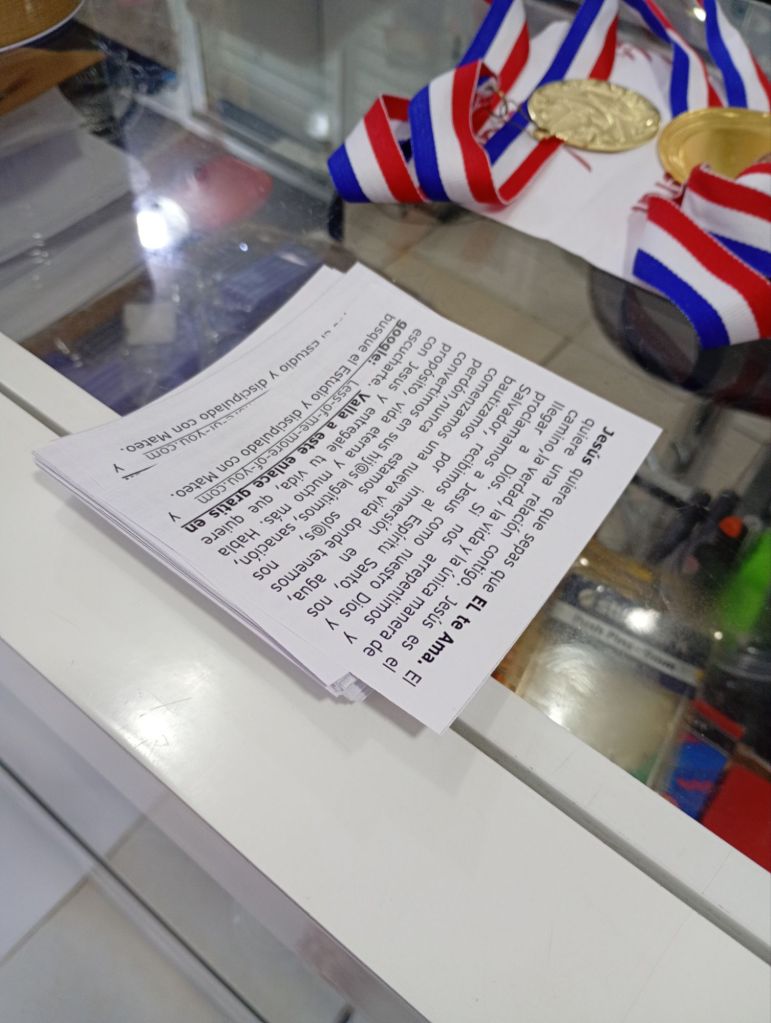 Jesús quiere que sepas que EL te Ama. El
quiere una relación contigo. Jesús es el
camino,la verdad, la vida y la única manera de
llegar a Dios. Si nos arrepentimos y
proclamamos a Jesus como nuestro Dios y
Salvador, recibimos al Espiritu Santo, nos
bautizamos por inmersión en agua,
comenzamos una nueva vida donde tenemos
perdón,nunca estamos sol@s, nos
convertimos en sus hij@s legítimos, sanación,
propósito, vida eterna y mucho más. Habla
con Jesus y entregale tu vida, que quiere
escucharte. Valla a este enlace gratis en
google: Less-of-me-more-of-you.com y
busque el Estudio y discipulado con Mateo.
you.com y
el Estudio y discipulado con Mateo.